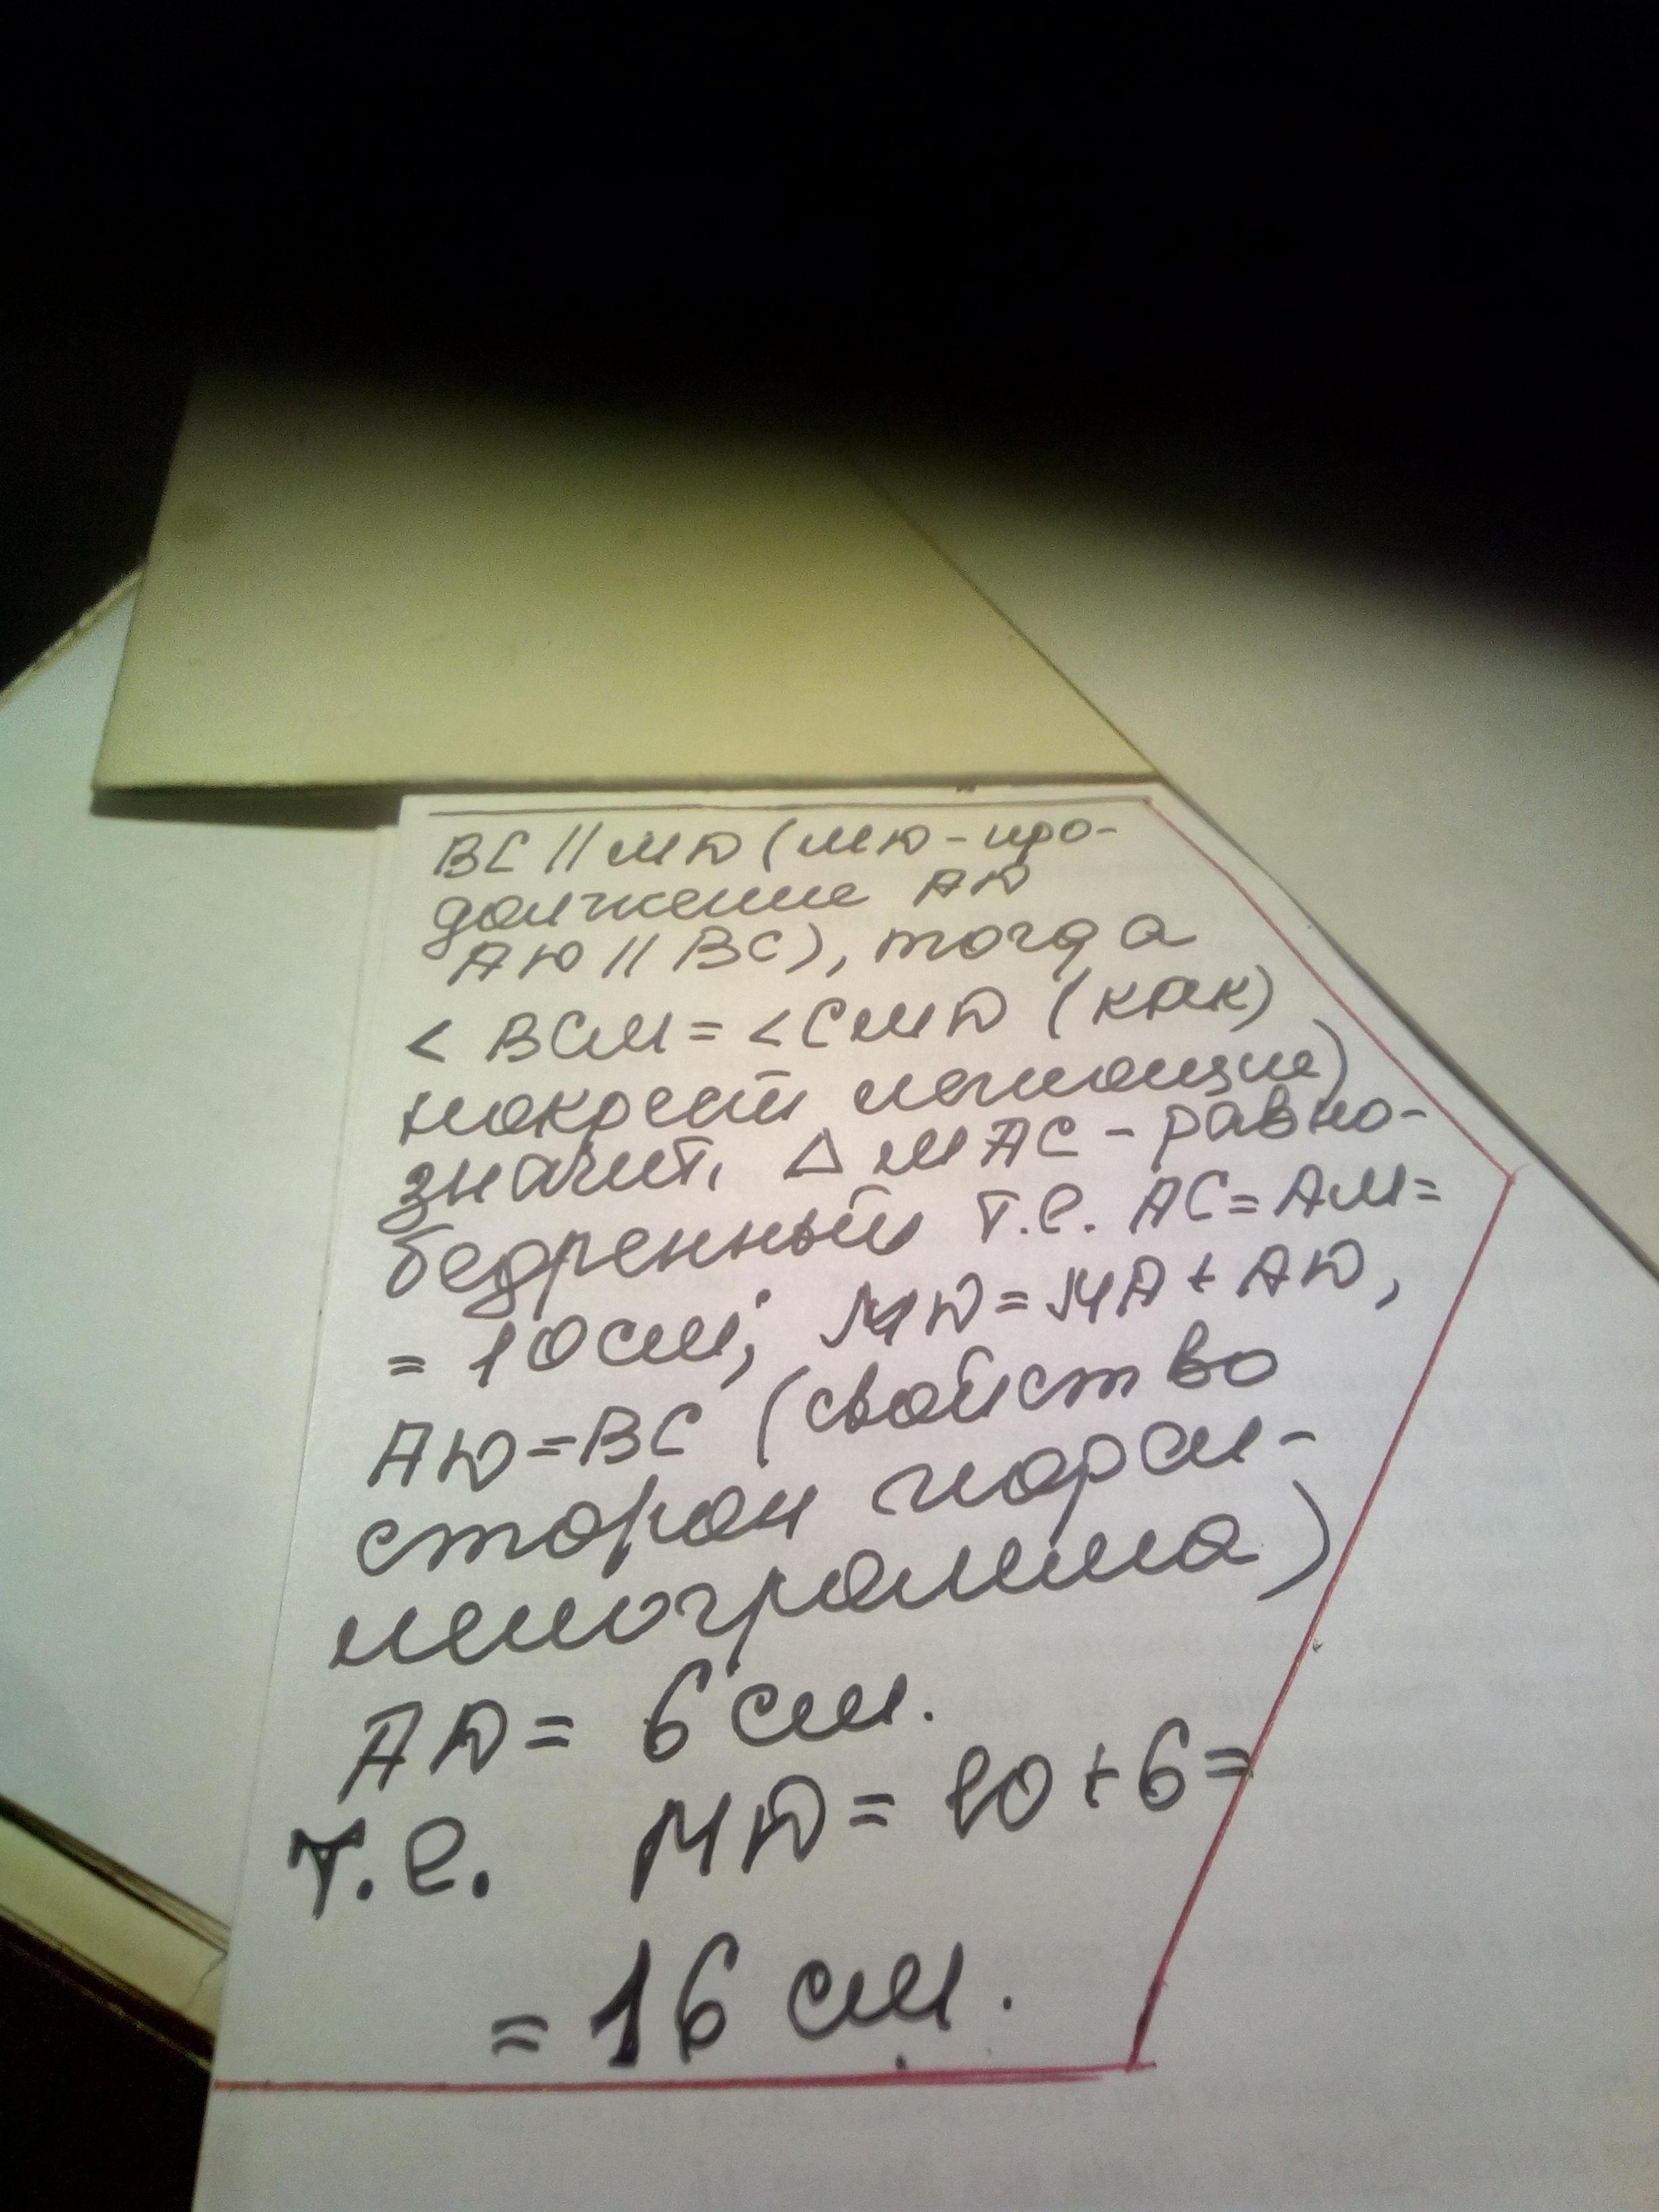 BC || MD (MD - про-
должение AD
AD || BC), тогда
< BCM = < CMD (как)
накрест лежащие)
значит, △ MAC - равно-
бедренный т.е. AC = AM =
= 10 см; MD = MA + AD,
AD = BC (свойство
сторон парал-
лелограмма)
AD = 6 см.
т.е. MD = 10 + 6 =
= 16 см.